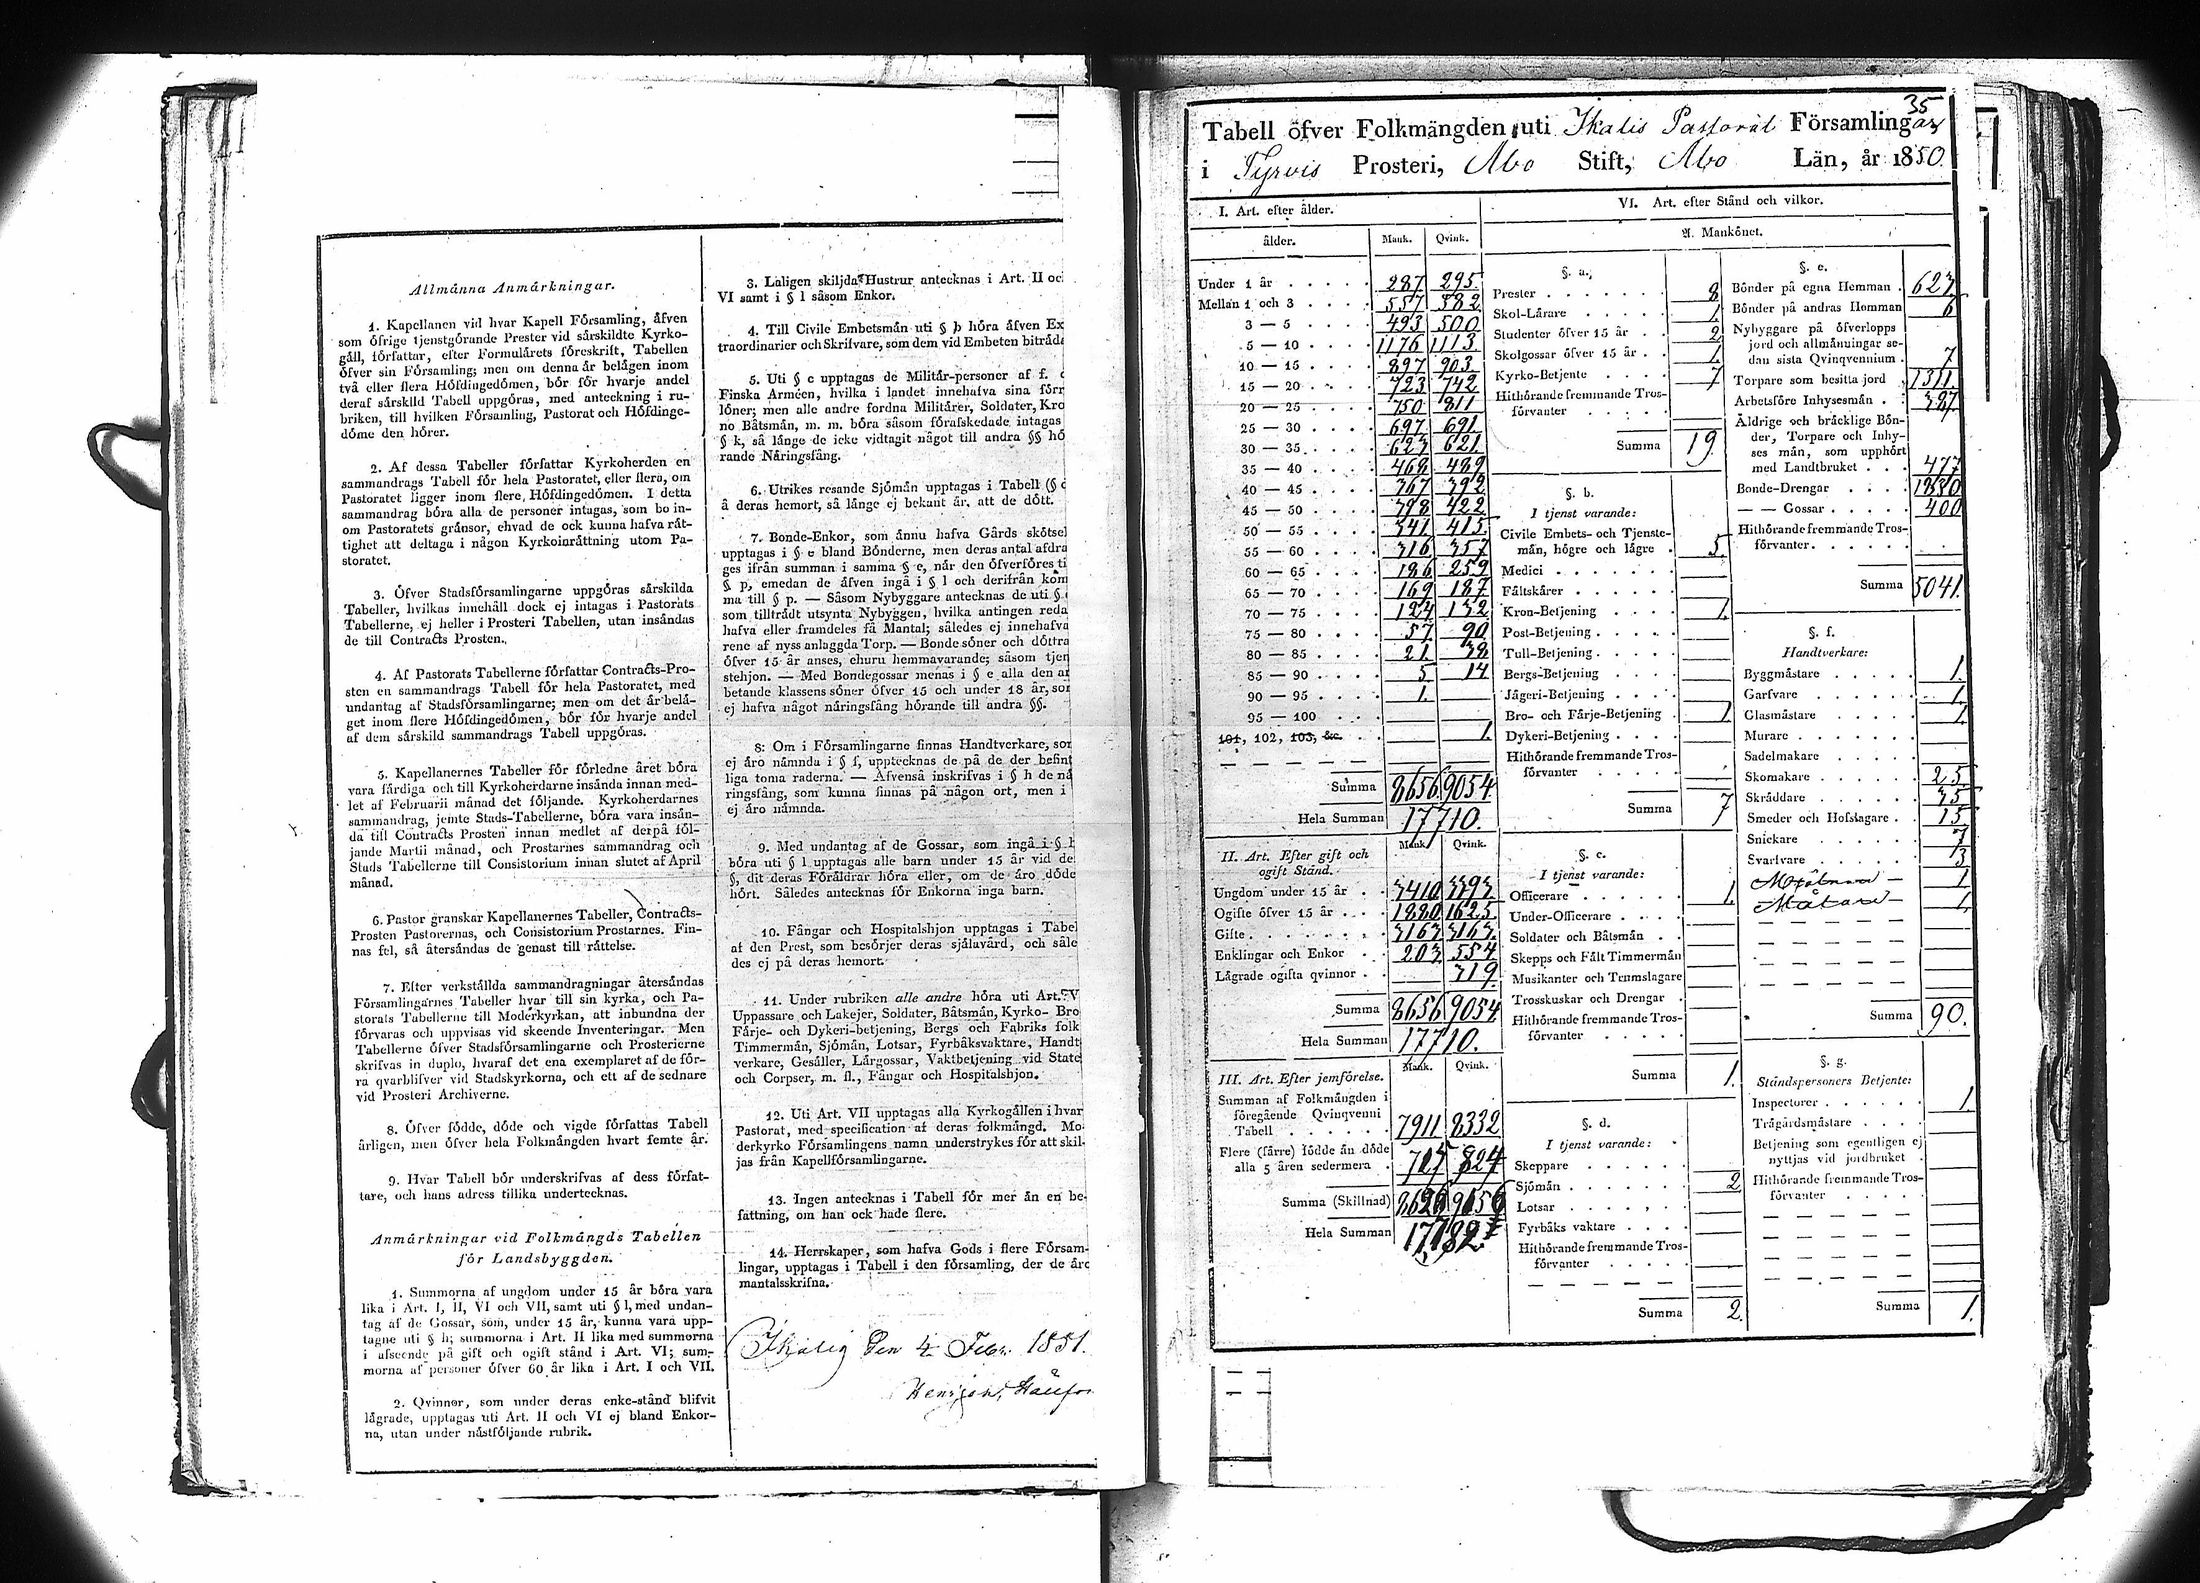 Allmänna Anmärkningar.
1. Kapellanen vid hvar Kapell Församling, äfven
som öfrige tjenstgörande Prester vid särskildte Kyrko-
gäll, författar, efter Formulärets föreskrift, Tabellen
öfver sin Församling; men om denna är belägen inom
två eller flera Höfdingedömen, bör för hvarje andel
deraf särskild Tabell uppgöras, med anteckning i ru-
briken, till hvilken Församling, Pastorat och Höfdinge-
döme den hörer.
2. Af dessa Tabeller författar Kyrkoherden en
sammandrags Tabell för hela Pastoratet, eller flera, om
Pastoratet ligger inom flere Höfdingedömen. I detta
sammandrag böra alla de personer intagas, som bo in-
om Pastoratets gränsor, ehvad de ock kunna hafva rät-
tighet att deltaga i någon Kyrkoinrättning utom Pa-
storatet.
3. Öfver Stadsförsamlingarne uppgöras särskilda
Tabeller, hvilkas innehåll dock ej intagas i Pastorats
Tabellerne, ej heller i Prosteri Tabellen, utan insändas
de till Contracts Prosten.
4. Af Pastorats Tabellerne författar Contracts-Pro-
sten en sammandrags Tabell för hela Pastoratet, med
undantag af Stadsförsamlingarne; men om det är belä-
get inom flere Höfdingedömen, bör för hvarje andel
af dem särskild sammandrags Tabell uppgöras.
5. Kapellanernes Tabeller för förledne året böra
vara färdiga och till Kyrkoherdarne insända innan med-
let af Februarii månad det följande. Kyrkoherdarnes
sammandrag, jemte Stads-Tabellerne, böra vara insän-
da till Contracts Prosten innan medlet af derpå föl-
jande Martii månad, och Prostarnes sammandrag och
Stads Tabellerne till Consistorium innan slutet af April
månad.
6. Pastor granskar Kapellanernes Tabeller, Contracts-
Prosten Pastorernas, och Consistorium Prostarnes. Fin-
nas fel, så återsändas de genast till rättelse.
7. Efter verkställda sammandragningar återsändas
Församlingarnes Tabeller hvar till sin kyrka, och Pa-
storats Tabellerne till Moderkyrkan, att inbundna der
förvaras och uppvisas vid skeende Inventeringar. Men
Tabellerne öfver Stadsförsamlingarne och Prosterierne
skrifvas in duplo, hvaraf det ena exemplaret af de för-
ra qvarblifver vid Stadskyrkorna, och ett af de sednare
vid Prosteri Archiverne.
8. Öfver födde, döde och vigde författas Tabell
årligen, men öfver hela Folkmängden hvart femte år.
9. Hvar Tabell bör underskrifvas af dess förfat-
tare, och hans adress tillika undertecknas.
Anmärkningar vid Folkmängds Tabellen
för Landsbyggden.
1. Summorna af ungdom under 15 år böra vara
lika i Art. I, II, VI och VII, samt uti § l, med undan-
tag af de Gossar, som, under 15 år, kunna vara upp-
tagne uti § h; summorna i Art. II lika med summorna
i afseende på gift och ogift stånd i Art. VI; sum-
morna af personer öfver 60 år lika i Art. I och VII.
2. Qvinnor, som under deras enke-stånd blifvit
lägrade, upptagas uti Art. II och VI ej bland Enkor-
na, utan under nästföljande rubrik.
3. Laligen skiljda Hustrur antecknas i Art. II oc
VI samt i § l såsom Enkor.
4. Till Civile Embetsmän uti § b höra äfven Ex
traordinarier och Skrifvare, som dem vid Embeten biträda
5. Uti § c upptagas de Militär-personer af f. d
Finska Arméen, hvilka i landet innehafva sina förr
löner; men alle andre fordna Militärer, Soldater, Kro
no Båtsmän, m. m. böra såsom förafskedade intagas
§ k, så länge de icke vidtagit något till andra §§ hö
rande Näringsfång.
6. Utrikes resande Sjömän upptagas i Tabell (§ d
å deras hemort, så länge ej bekant är, att de dött.
7. Bonde-Enkor, som ännu hafva Gårds skötsel
upptagas i § e bland Bönderne, men deras antal afdra
ges ifrån summan i samma § e, när den öfverföres ti
§ p, emedan de äfven ingå i § l och derifrån kom
ma till § p. — Såsom Nybyggare antecknas de uti §
som tillträdt utsynta Nybyggen, hvilka antingen reda
hafva eller framdeles få Mantal; således ej innehafva
rene af nyss anlaggda Torp. — Bonde söner och döttra
öfver 15 år anses, ehuru hemmavarande, såsom tjen
stehjon. — Med Bondegossar menas i § e alla den ar
betande klassens söner öfver 15 och under 18 år, som
ej hafva något näringsfång hörande till andra §§.
8: Om i Församlingarne finnas Handtverkare, som
ej äro nämnda i § f, upptecknas de på de der befint
liga toma raderna. — Äfvenså inskrifvas i § h de nä
ringsfång, som kunna finnas på någon ort, men i
ej äro nämnda.
9. Med undantag af de Gossar, som ingå i § h
böra uti § l upptagas alle barn under 15 år vid de
§, dit deras Föräldrar höra eller, om de äro döde
hört. Således antecknas för Enkorna inga barn.
10. Fångar och Hospitalshjon upptagas i Tabel
af den Prest, som besörjer deras själavård, och såle
des ej på deras hemort.
11. Under rubriken alle andre höra uti Art. V
Uppassare och Lakejer, Soldater, Båtsmän, Kyrko- Bro
Färje- och Dykeri-betjening, Bergs och Fabriks folk
Timmermän, Sjömän, Lotsar, Fyrbåksvaktare, Handt
verkare, Gesäller, Lärgossar, Vaktbetjening vid State
och Corpser, m. fl., Fångar och Hospitalshjon.
12. Uti Art. VII upptagas alla Kyrkogällen i hvar
Pastorat, med specification af deras folkmängd. Mo-
derkyrko Församlingens namn understrykes för att skil-
jas från Kapellförsamlingarne.
13. Ingen antecknas i Tabell för mer än en be-
fattning, om han ock hade flere.
14. Herrskaper, som hafva Gods i flere Försam-
lingar, upptagas i Tabell i den församling, der de äro
mantalsskrifna.
Ikalis Den 4 Febr. 1851.
35
Tabell öfver Folkmängden uti Ikalis Pastorat Församlingar
i Tyrvis Prosteri, Åbo Stift, Åbo Län, år 1850.
I. Art. efter ålder.
ålder. Mank. Qvink.
Under 1 år 287 295
Mellan 1 och 3 557 582
3 — 5 493 500
5 — 10 1176 1113
10 — 15 897 903
15 — 20 723 742
20 — 25 750 811
25 — 30 697 691
30 — 35 623 621
35 — 40 468 489
40 — 45 367 392
45 — 50 398 422
50 — 55 341 415
55 — 60 316 357
60 — 65 186 259
65 — 70 169 187
70 — 75 124 132
75 — 80 57 90
80 — 85 21 38
85 — 90 5 14
90 — 95 1
95 — 100
101, 102, 103, &c. 1
Summa 8656 9054
Hela Summan 17710.
II. Art. Efter gift och
ogift Stånd. Mank. Qvink.
Ungdom under 15 år 3410 3393
Ogifte öfver 15 år 1880 1625
Gifte 3163 3163
Enklingar och Enkor 203 554
Lägrade ogifta qvinnor 319
Summa 8656 9054
Hela Summan 17710.
III. Art. Efter jemförelse. Mank. Qvink.
Summan af Folkmängden i
föregående Qvinqvenni
Tabell 7911 8332
Flere (färre) födde än döde
alla 5 åren sedermera 824
Summa (Skillnad)
Hela Summan
VI. Art. efter Stånd och vilkor.
A. Mankönet.
§. a.
Prester 8
Skol-Lärare 1
Studenter öfver 15 år 2
Skolgossar öfver 15 år 1
Kyrko-Betjente 7
Hithörande fremmande Tros-
förvanter
Summa 19.
§. b.
I tjenst varande:
Civile Embets- och Tjenste-
män, högre och lägre 5
Medici
Fältskärer
Kron-Betjening 1
Post-Betjening
Tull-Betjening
Bergs-Betjening
Jägeri-Betjening
Bro- och Färje-Betjening 1
Dykeri-Betjening
Hithörande fremmande Tros-
förvanter
Summa 7
§. c.
I tjenst varande:
Officerare 1
Under-Officerare
Soldater och Båtsmän
Skepps och Fält Timmermän
Musikanter och Trumslagare
Trosskuskar och Drengar
Hithörande fremmande Tros-
förvanter
Summa 1.
§. d.
I tjenst varande:
Skeppare
Sjömän 2
Lotsar
Fyrbåks vaktare
Hithörande fremmande Tros-
förvanter
Summa 2.
§. e.
Bönder på egna Hemman 623
Bönder på andras Hemman 6
Nybyggare på öfverlopps
jord och allmänningar se-
dan sista Qvinqvennium 7
Torpare som besitta jord 1311
Arbetsföre Inhysesmän 387
Åldrige och bräcklige Bön-
der, Torpare och Inhy-
ses män, som upphört
med Landtbruket 477
Bonde-Drengar 1830
— — Gossar 400
Hithörande fremmande Tros-
förvanter
Summa 5041.
§. f.
Handtverkare:
Byggmästare 1
Garfvare 1
Glasmästare 1
Murare
Sadelmakare
Skomakare 25
Skräddare 35
Smeder och Hofslagare 15
Snickare 7
Svarfvare 3
1
Målare 1
Summa 90.
§. g.
Ståndspersoners Betjente:
Inspectorer 1
Trägårdsmästare
Betjening som egentligen ej
nyttjas vid jordbruket
Hithörande fremmande Tros-
förvanter
Summa 1.